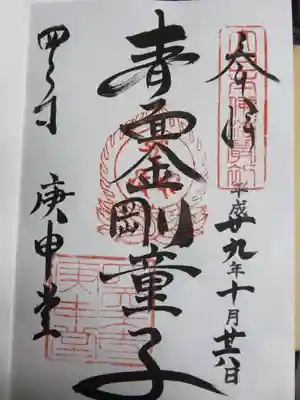 奉拝
平成廿九年十月廿八日
青面金剛童子
四天王寺
庚申堂